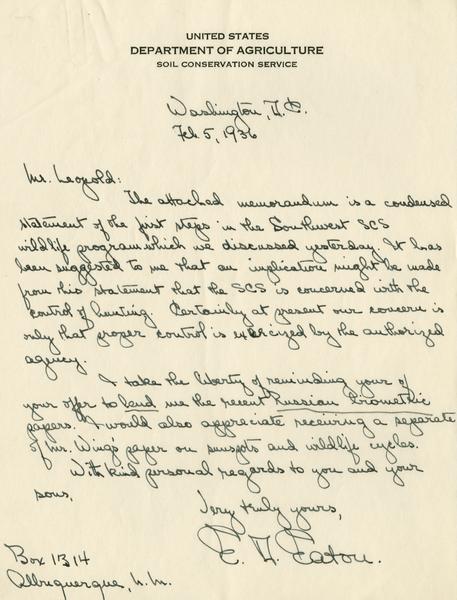 UNITED STATES
DEPARTMENT OF AGRICULTURE
SOIL CONSERVATION SERVICE
Washington, D.C.
Feb. 5, 1936
Mr. Leopold:
The attached memorandum is a condensed
statement of the first steps in the Southwest SCS
wildlife program which we discussed yesterday. It has
been suggested to me that an implication might be made
from this statement that the SCS is concerned with the
control of hunting. Certainly at present our concern is
only that proper control is exercized by the authorized
agency.
I take the liberty of reminding your of
your offer to lend me the recent Russian biometric
papers. I would also appreciate receiving a separate
of Mr. Wing's paper on sunspots and wildlife cycles.
With kind personal regards to you and your
sons,
Very truly yours,
E. H. Eaton.
Box 1314
Albuquerque, N.M.